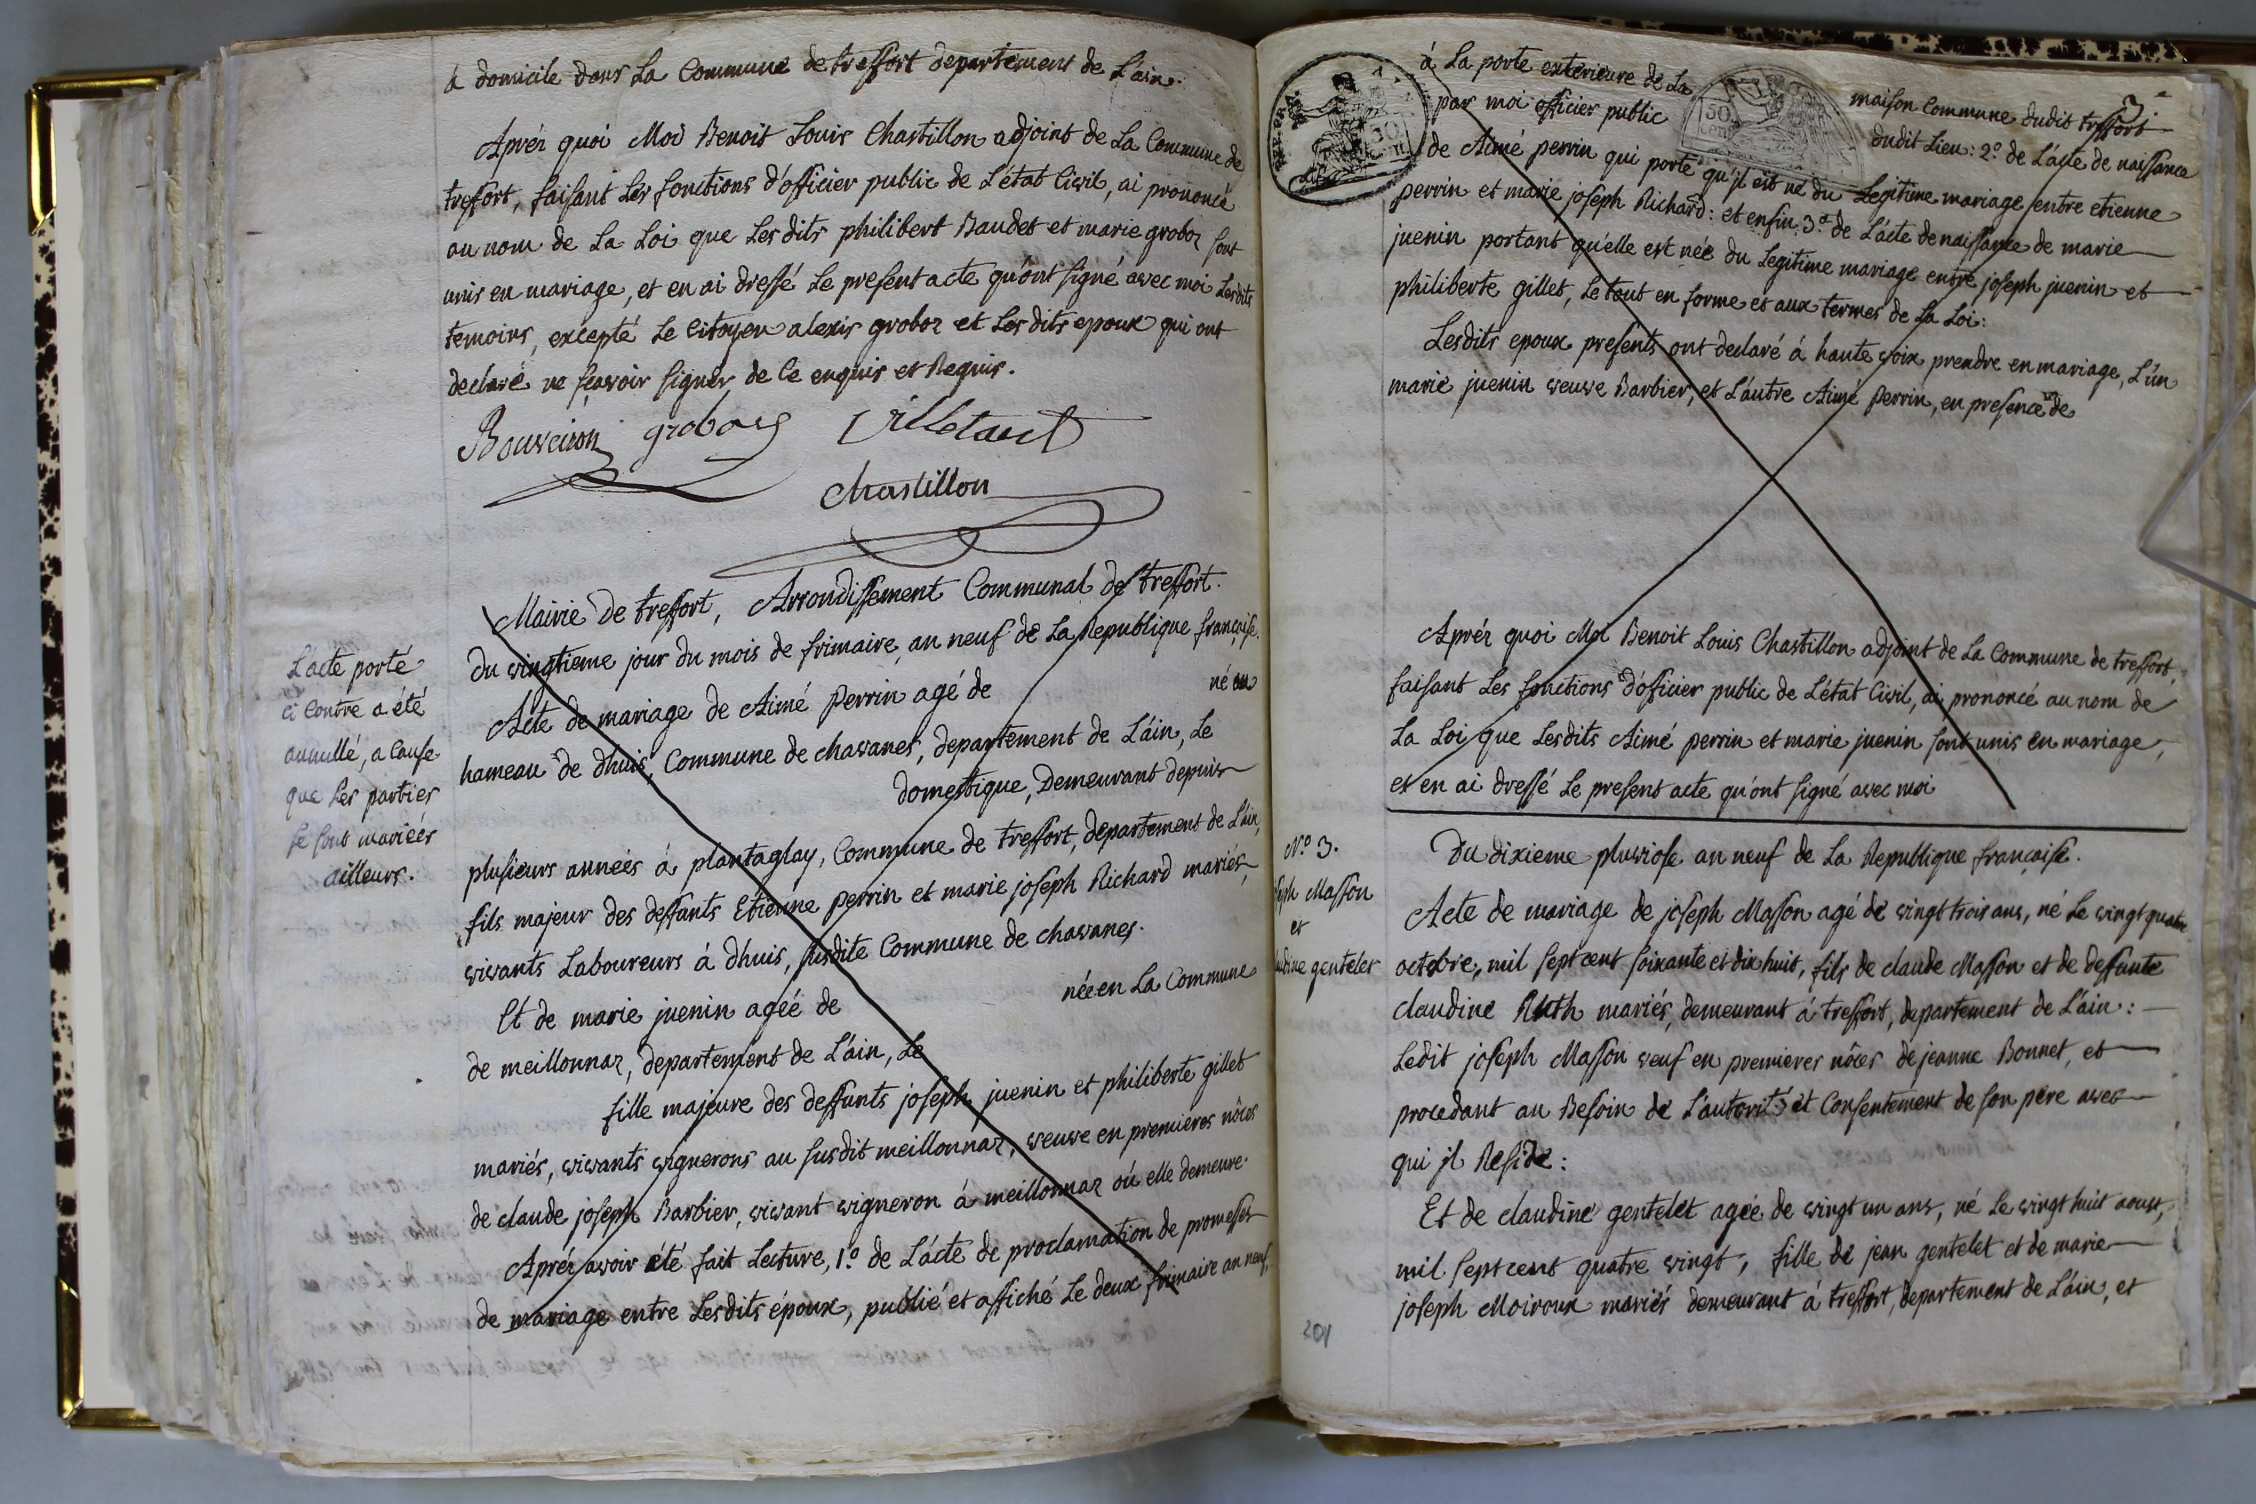 à domicile dans La Commune de treffort departement de L'ain.
Aprés quoi Moi Benoit Louis Chastillon adjoint de La Commune de
treffort, faisant Les fonctions d'officier public de L'état Civil, ai prononcé
au nom de La Loi que Lesdits philibert Baudet et marie groboz sont
unis en mariage, et en ai dressé Le present acte qu'ont signé avec moi Lesdits
temoins, excepté Le Citoyen alexis groboz et Lesdits epoux qui ont
declaré ne sçavoir signer, de Ce enquis et Requis.
Bouveiron groboz Villetard
Chastillon
Mairie De treffort, Arrondissement Communal de treffort.
Du vingtieme jour du mois de frimaire, an neuf de La Republique française.
Acte de mariage de Aimé Perrin agé de né au
hameau de dhuis, Commune de chavanes, departement de L'áin, Le
domestique, Demeurant depuis
plusieurs années à plantaglay, Commune de treffort, departement de L'áin,
fils majeur des deffunts Etienne perrin et marie joseph Richard mariés,
vivants Laboureurs à dhuis, susdite Commune de chavanes.
Et de marie juenin agée de née en La Commune
de meillonnaz, departement de L'áin, Le
fille majeure des deffunts joseph juenin et philiberte gillet
mariés, vivants vignerons au susdit meillonnaz, veuve en premieres nôces
de claude joseph Barbier, vivant vigneron à meillonnaz où elle demeure.
Aprés avoir été fait Lecture, 1.º de L'ácte de proclamation de promesses
de mariage entre Lesdits époux, publié et affiché Le deux frimaire an neuf,
L'acte porté
ci Contre a été
annullé, a Cause
que Les parties
se sont mariées
ailleurs.
3
à La porte exterieure de La maison Commune dudit treffort
par moi officier public dudit Lieu: 2.º de L'acte de naissance
de Aimé perrin qui porte qu'il est né du Legitime mariage entre etienne
perrin et marie joseph Richard: et enfin 3.º de L'ácte de naissance de marie
juenin portant qu'elle est née du Legitime mariage entre joseph juenin et
philiberte gillet, Le tout en forme et aux termes de La Loi:
Lesdits epoux presents ont declaré á haute voix prendre en mariage, L'ún
marie juenin veuve Barbier, et L'autre Aimé Perrin, en presence de
Aprés quoi Moi Benoit Louis Chastillon adjoint de La Commune de treffort,
faisant Les fonctions d'officier public de L'état Civil, ai prononcé au nom de
La Loi que Lesdits Aimé perrin et marie juenin sont unis en mariage,
et en ai dressé Le present acte qu'ont signé avec moi
N.º 3.
seph Masson
et
udine gentelet
Du dixieme pluviose an neuf de La Republique française.
Acte de mariage de joseph Masson agé de vingt trois ans, né Le vingt quatre
octobre, mil sept cent soixante et dix huit, fils de claude Masson et de deffunte
claudine Ruth mariés, demeurant á treffort, departement de L'áin:
Ledit joseph Masson veuf en premieres nôces de jeanne Bonnet, et
procedant au Besoin de L'autorité et Consentement de son pére avec
qui jl Reside:
Et de claudine gentelet agée de vingt un ans, né Le vingt huit aoust,
mil sept cent quatre vingt, fille de jean gentelet et de marie
joseph Moiroux mariés demeurant á treffort, departement de L'áin, et
201